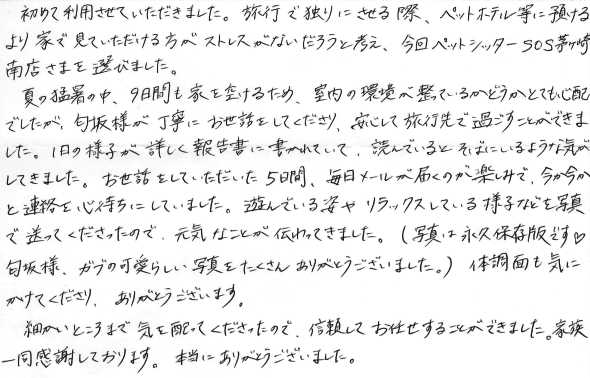 初めて利用させていただきました。旅行で独りにさせる際、ペットホテル等に預ける
より家で見ていただける方がストレスがないだろうと考え、今回ペットシッターSOS茅ヶ崎
南店さまを選びました。
夏の猛暑の中、9日間も家を空けるため、室内の環境が整っているかどうかとても心配
でしたが、匂坂様が丁寧にお世話をしてくださり、安心して旅行先で過ごすことができま
した。1日の様子が詳しく報告書に書かれていて、読んでいるとそばにいるような気が
してきました。お世話をしていただいた5日間、毎日メールが届くのが楽しみで、今か今か
と連絡を心待ちにしていました。遊んでいる姿やリラックスしている様子などを写真
で送ってくださったので、元気なことが伝わってきました。(写真は永久保存版です♡
匂坂様、ガブの可愛らしい写真をたくさんありがとうございました。) 体調面も気に
かけてくださり、ありがとうございます。
細かいところまで気を配ってくださったので、信頼してお任せすることができました。家族
一同感謝しております。本当にありがとうございました。